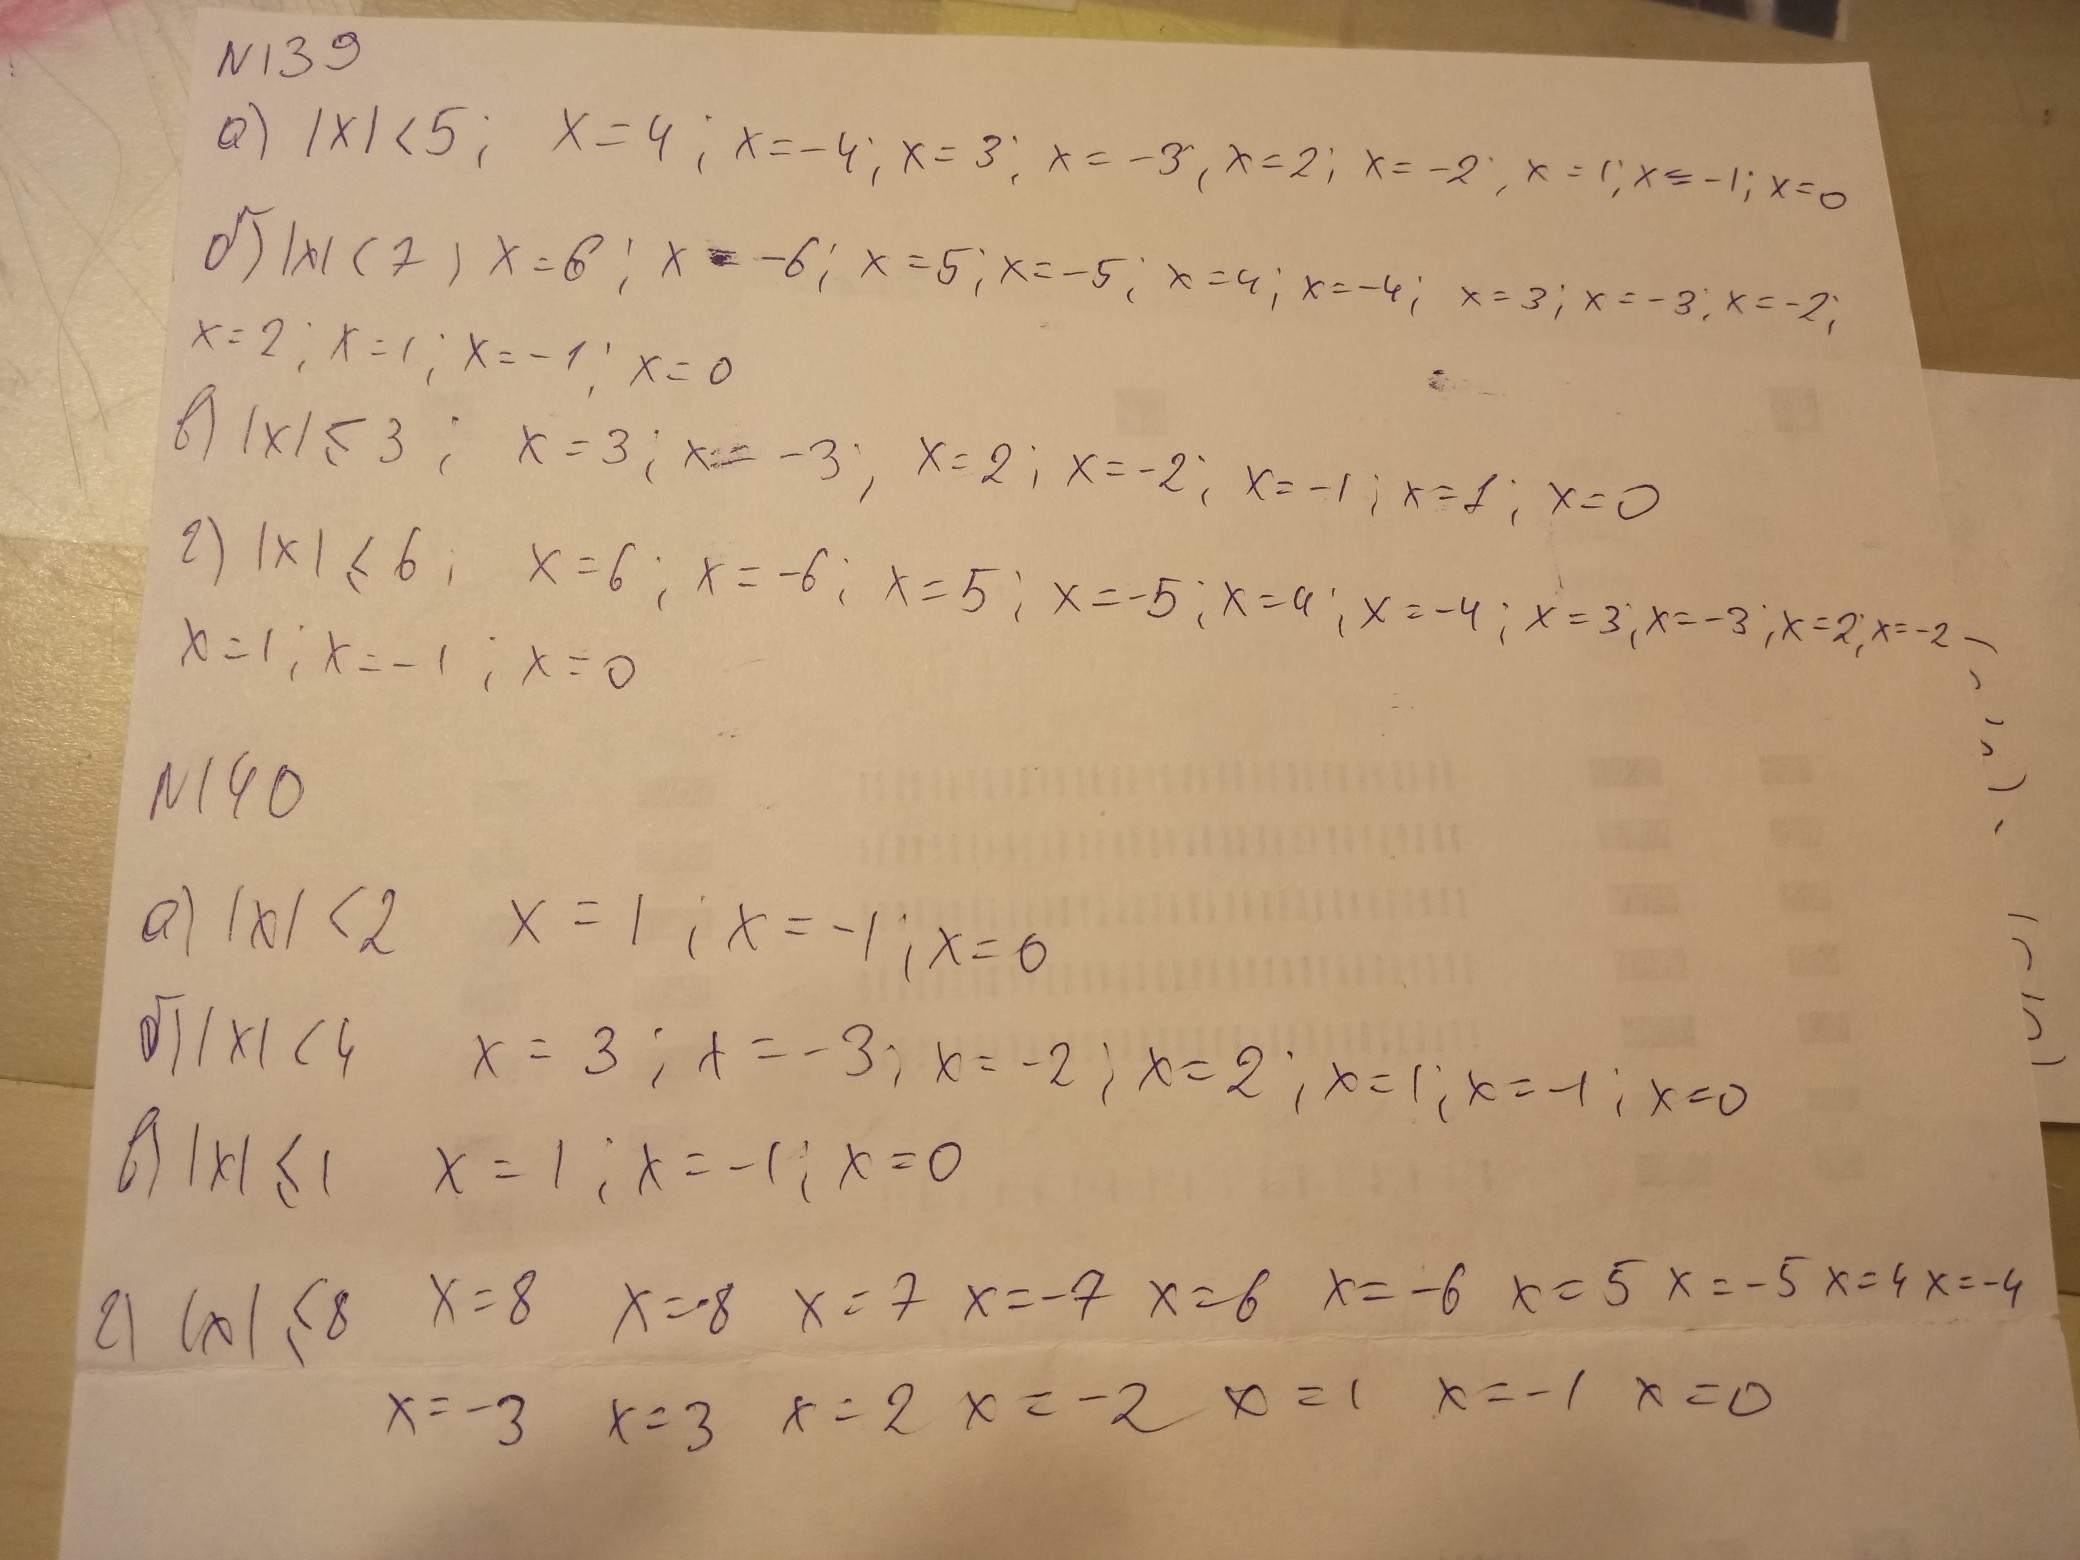 N139
а) |x| < 5; x = 4; x = -4; x = 3; x = -3; x = 2; x = -2; x = 1; x = -1; x = 0
б) |x| < 7; x = 6; x = -6; x = 5; x = -5; x = 4; x = -4; x = 3; x = -3; x = -2;
x = 2; x = 1; x = -1; x = 0
в) |x| ≤ 3; x = 3; x = -3; x = 2; x = -2; x = -1; x = 1; x = 0
г) |x| ≤ 6; x = 6; x = -6; x = 5; x = -5; x = 4; x = -4; x = 3; x = -3; x = 2; x = -2
x = 1; x = -1; x = 0
N140
а) |x| < 2 x = 1; x = -1; x = 0
б) |x| < 4 x = 3; x = -3; x = -2; x = 2; x = 1; x = -1; x = 0
в) |x| ≤ 1 x = 1; x = -1; x = 0
г) |x| ≤ 8 x = 8 x = -8 x = 7 x = -7 x = 6 x = -6 x = 5 x = -5 x = 4 x = -4
x = -3 x = 3 x = 2 x = -2 x = 1 x = -1 x = 0